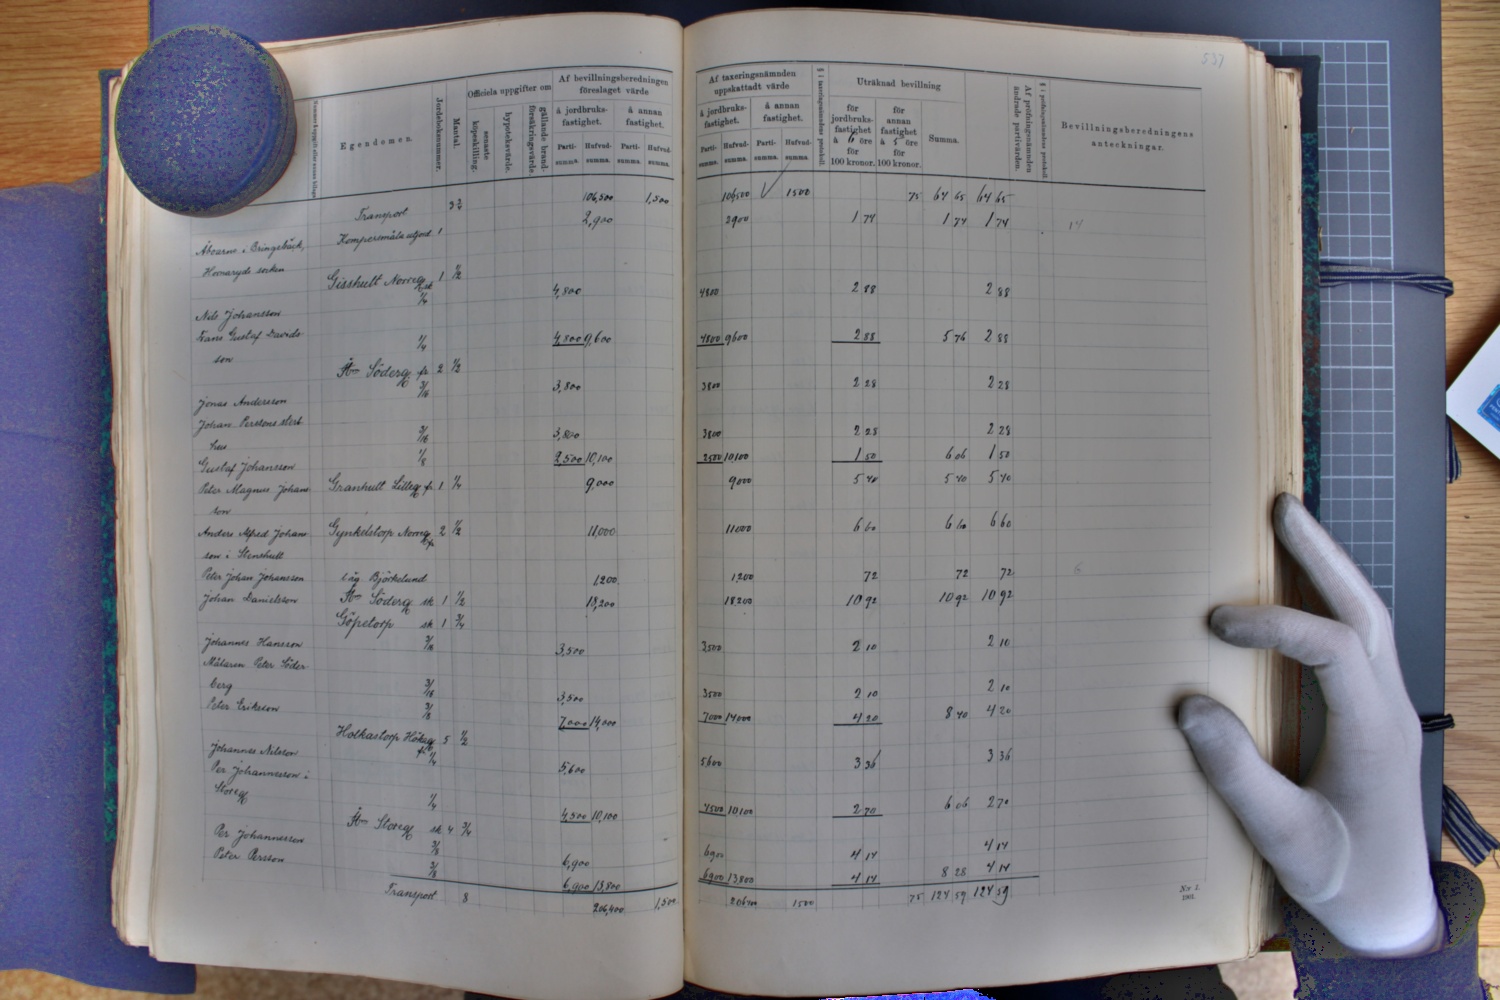 537
Egendomen.
Jordeboksnummer.
Mantal.
Officiela uppgifter om
senaste köpeskilling.
hypoteksvärde.
gällande brandförsäkringsvärde
Af bevillningsberedningen föreslaget värde
å jordbruksfastighet.
å annan fastighet.
Partisumma. Hufvudsumma. Partisumma. Hufvudsumma.
Af taxeringsnämnden uppskattadt värde
å jordbruksfastighet.
å annan fastighet.
Partisumma. Hufvudsumma. Partisumma. Hufvudsumma.
§ i taxeringsnämndens protokoll.
Uträknad bevillning
för jordbruksfastighet à 6 öre för 100 kronor.
för annan fastighet à 5 öre för 100 kronor.
Summa.
Af pröfningsnämnden ändrade partivärden.
§ i pröfningsnämndens protokoll.
Bevillningsberedningens anteckningar.
Transport 106,500 1,500 106,500 1500 75 64 65 64 65
Åboarne i Bringebäck, 1 2,900 2900 1 74 1 74 1 74 14
Hovmaryds socken
Gisshult Norreg 1 1/2
Nils Johansson 1/4 4,800 4800 2 88 2 88
Frans Gustaf Davidsson 1/4 4,800 9,600 4800 9600 2 88 5 76 2 88
Söderg. fr 2 1/2
Jonas Andersson 3/16 3,800 3800 2 28 2 28
Johan Perssons sterbhus 3/16 3,800 3800 2 28 2 28
Gustaf Johansson 1/8 2,500 10,100 2500 10100 1 50 6 06 1 50
Peter Magnus Johansson Granhult Lilleg fr 1 1/4 9,000 9000 5 40 5 40 5 40
Anders Alfred Johansson i Stenshult Gynkelstorp Norreg 2 1/2 11,000 11000 6 60 6 60 6 60
Peter Johan Johansson Björkelund 1200 1,200 72 72 72 6
Johan Danielsson Söderg sk 1 1/2 18,200 18200 10 92 10 92 10 92
Göpetorp sk 1 3/4
Johannes Hansson 3/16 3,500 3500 2 10 2 10
Målaren Peter Söderberg 3/16 3,500 3500 2 10 2 10
Peter Eriksson 3/8 7,000 14,000 7000 14000 4 20 8 40 4 20
Holkastorp 5 1/2
Johannes Nilsson 1/4 5,600 5600 3 36 3 36
Per Johannesson i Storeg 1/4 4,500 10,100 4500 10100 2 70 6 06 2 70
Storeg sk 4 3/4
Per Johannesson 3/8 6,900 6900 4 14 4 14
Peter Persson 3/8 6,900 13,800 6900 13,800 4 14 8 28 4 14
Transport 8 206,400 1,500 1500 75 124 59 124 59
N:r 2.
1901.